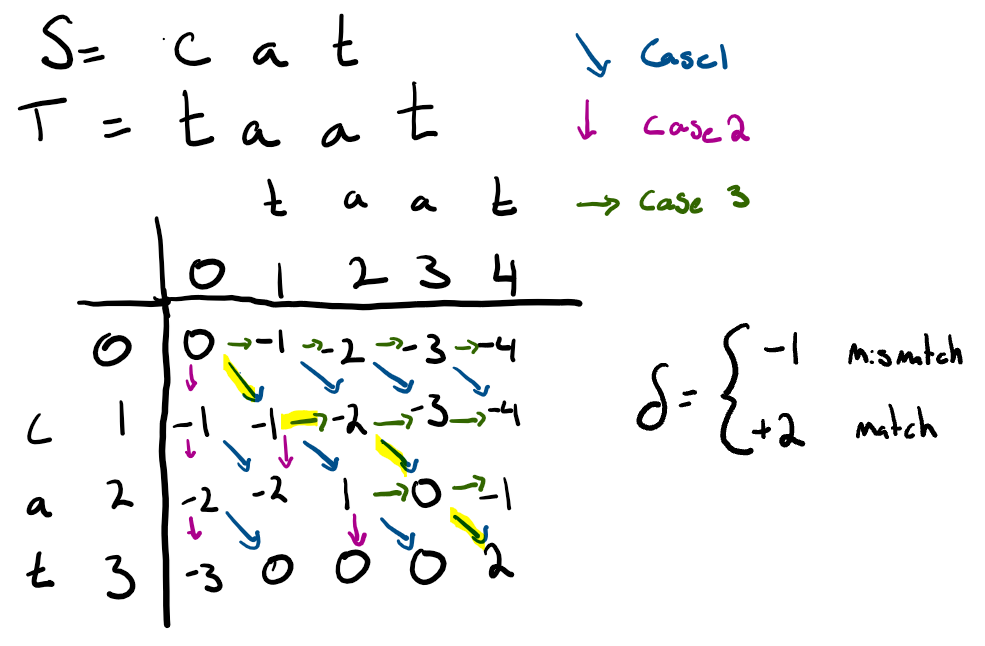 S = c a t
Case1
T = t a a t
Case 2
t a a t
Case 3
0 1 2 3 4
0 0 -1 -2 -3 -4
c 1 -1 -1 -2 -3 -4
a 2 -2 -2 1 0 -1
t 3 -3 0 0 0 2
δ = { -1 mismatch
+2 match